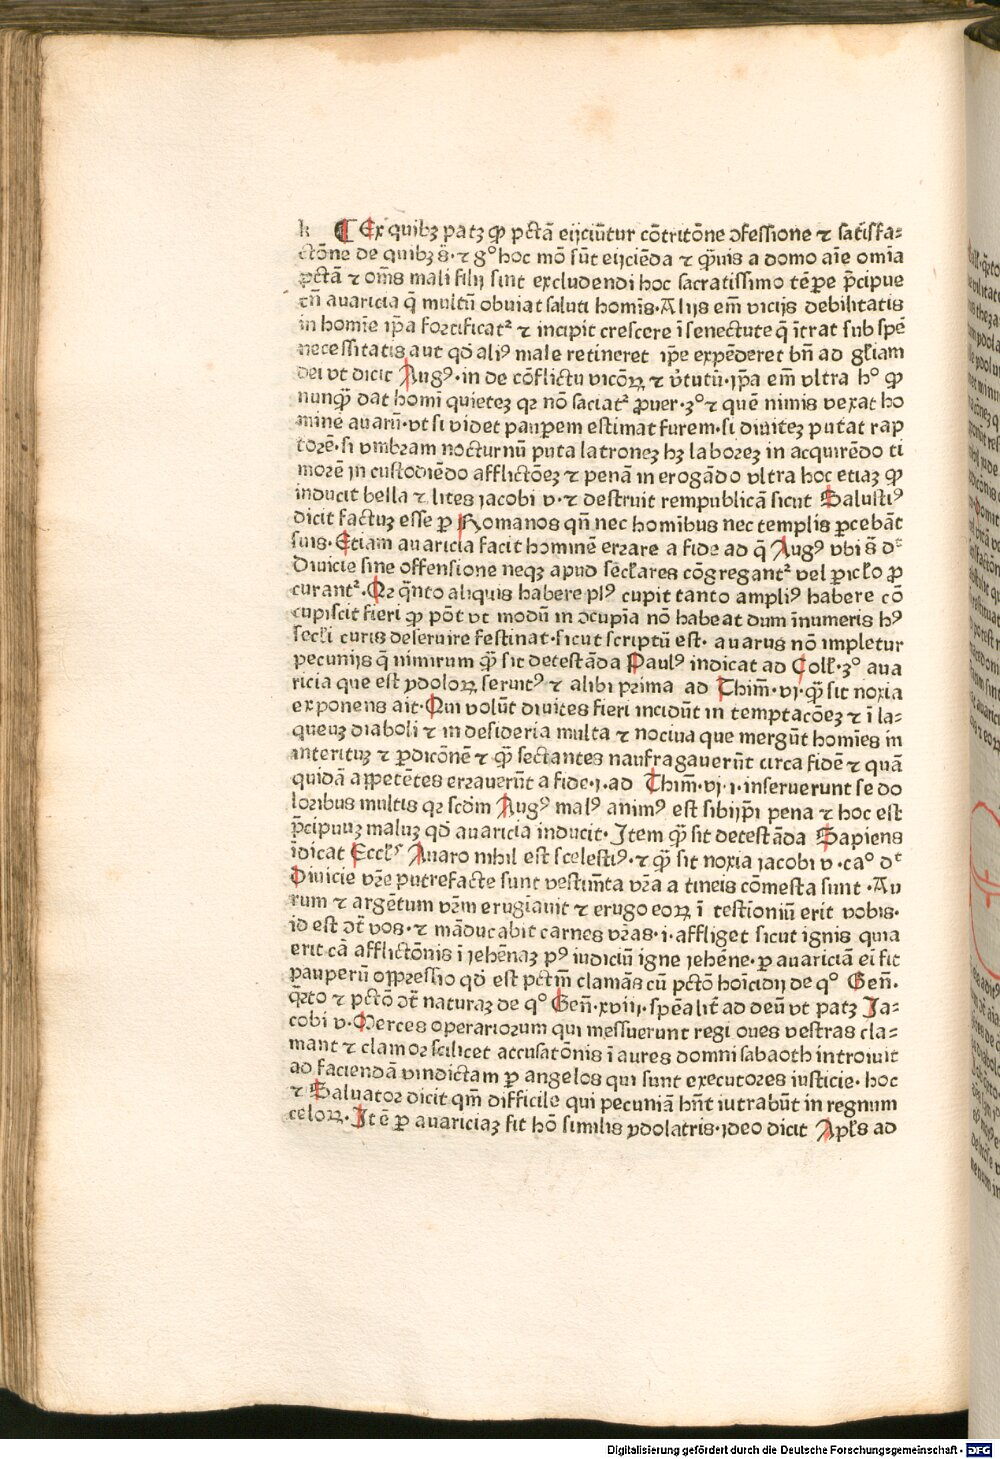 k ¶ Ex quibꝫ patꝫ ꝙ pctā eijciūtur cōtritōne ↄfessione ⁊ satisfa⸗
ctōne de quibꝫ s̄· ⁊ gº hoc mō sūt eijciēda ⁊ q̄uis a domo aīe omīa
pctā ⁊ om̄s mali filij sint excludendi hoc sacratissimo tēpe p̄cipue
tn̄ auaricia q̄ multū obuiat saluti homīs· Alijs em̄ vicijs debilitatis
in homīe ip̄a fortificatᷣ ⁊ incipit crescere ī senectute q̄ ītrat sub spē
necessitatis aut qd̄ aliꝰ male retineret ip̄e expēderet bn̄ ad gl̄iam
dei vt dicit Augꝰ· in de cōflictu vicōꝝ ⁊ v̄tutū· ip̄a em̄ vltra hº ꝙ
nunq̄ dat homī quietez qꝛ nō saciatᷣ ꝓuer· 3º ⁊ quē nimis vexat ho
minē auarū· vt si videt pauꝑem estimat furem· si diuitez putat rap
torē· si vmbram nocturnū puta latronez hꝫ laborez in acquirēdo ti
morē in custodiēdo afflictōez ⁊ penā in erogādo vltra hoc etiaꝫ ꝙ
inducit bella ⁊ lites jacobi v· ⁊ destruit rempublicā sicut Salustiꝰ
dicit factuꝫ esse ꝑ Romanos qn̄ nec homībus nec templis ꝑcebāt
suis· Etiam auaricia facit hominē errare a fide ad q̄ Augꝰ vbi s̄ dᵗ
Diuicie sine offensione neqꝫ apud sēcl̄ares cōgregantᷣ vel ꝑicl̄o ꝓ
curantᷣ· Qꝛ q̄nto aliquis habere plꝰ cupit tanto ampliꝰ habere cō
cupiscit fieri ꝙ pōt vt modū in ↄcupīa nō habeat dum īnumeris hꝰ
secl̄i curis deseruire festinat· sicut scriptū est· auarus nō impletur
pecunijs q̄ nimirum q̄ sit detestāda Paulꝰ indicat ad Coll̄· 3º aua
ricia que est ydoloꝝ seruitꝰ ⁊ alibi prima ad Thim̄· vj· q̄ sit noxia
exponens ait· Qui volūt diuites fieri incidūt in temptacōez ⁊ ī la⸗
queuꝫ diaboli ⁊ in desideria multa ⁊ nociua que mergūt homīes in
interituꝫ ⁊ ꝑdicōnē ⁊ q̄ sectantes naufragauerūt circa fidē ⁊ quā
quidā appetētes errauerūt a fide· j· ad Thim̄· vj· j· inseruerunt se do
loribus multis qꝛ scd̄m Augꝰ malꝰ animꝰ est sibijp̄i pena ⁊ hoc est
p̄cipuuꝫ maluꝫ qd̄ auaricia inducit· Item q̄ sit detestāda Sapiens
īdicat Eccl̄ˢ Auaro nihil est scelestiꝰ· ⁊ q̄ sit noxia jacobi v· caº dᵗ
Diuicie vr̄e putrefacte sunt vestim̄ta vr̄a a tineis cōmesta sunt· Au
rum ⁊ argētum vr̄m erugīauit ⁊ erugo eoꝝ ī testīoniū erit vobis·
id est ↄ̄t vos· ⁊ māducabit carnes vr̄as· i· affliget sicut ignis quia
erit cā afflictōnis ī jehēnaꝫ pꝰ iudiciū igne jehēne· ꝑ auariciā eī fit
pauperū oppressio qd̄ est pctm̄ clamās cū pctō hoīcidij de qº Gen̄·
q̄rto ⁊ pctō ↄ̄t naturaꝫ de qº Gen̄· xviij· spēalit̄ ad deū vt patꝫ Ja⸗
cobi v· Merces operariorum qui messuerunt regi oues vestras cla⸗
mant ⁊ clamor scilicet accusatōnis ī aures domni sabaoth introiuit
ad faciendā vindictam ꝑ angelos qui sunt executores iusticie· hoc
⁊ Saluator dicit qm̄ difficile qui pecuniā hn̄t iutrabūt in regnum
celoꝝ· Itē ꝑ auariciaꝫ fit hō similis ydolatris· ideo dicit Apl̄s ad
Digitalisierung gefördert durch die Deutsche Forschungsgemeinschaft - DFG